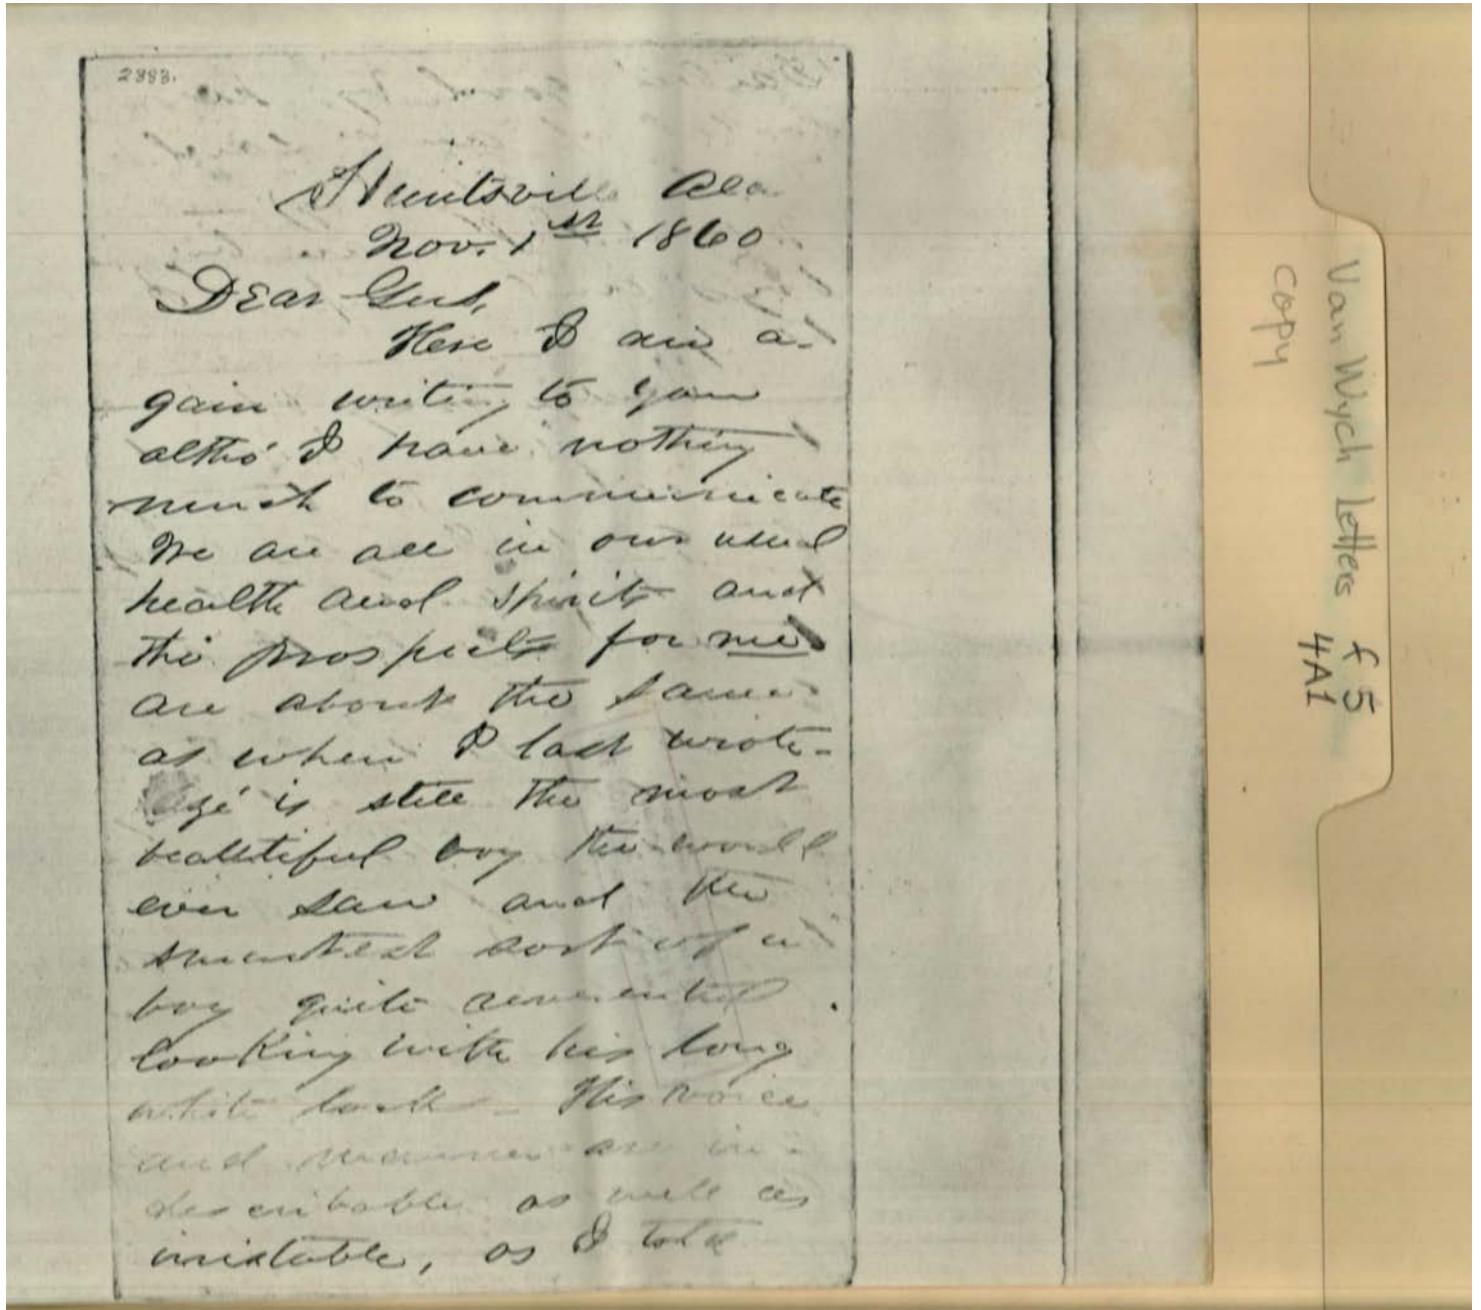 2393.
Huntsville Ala
Nov. 1st 1860
Dear Gus,
Here I am a-
gain writing to you
altho' I have nothing
much to communicate
We are all in our usual
health and spirits and
the prospects for me
are about the same
as when I last wrote-
is still the most
beautiful boy the world
ever saw and the
smartest sort of a
boy quite
looking with his long
white locks - His voice
and manner are in-
describable as well as
, as I told
Van Wych Letters f 5
4A1
copy